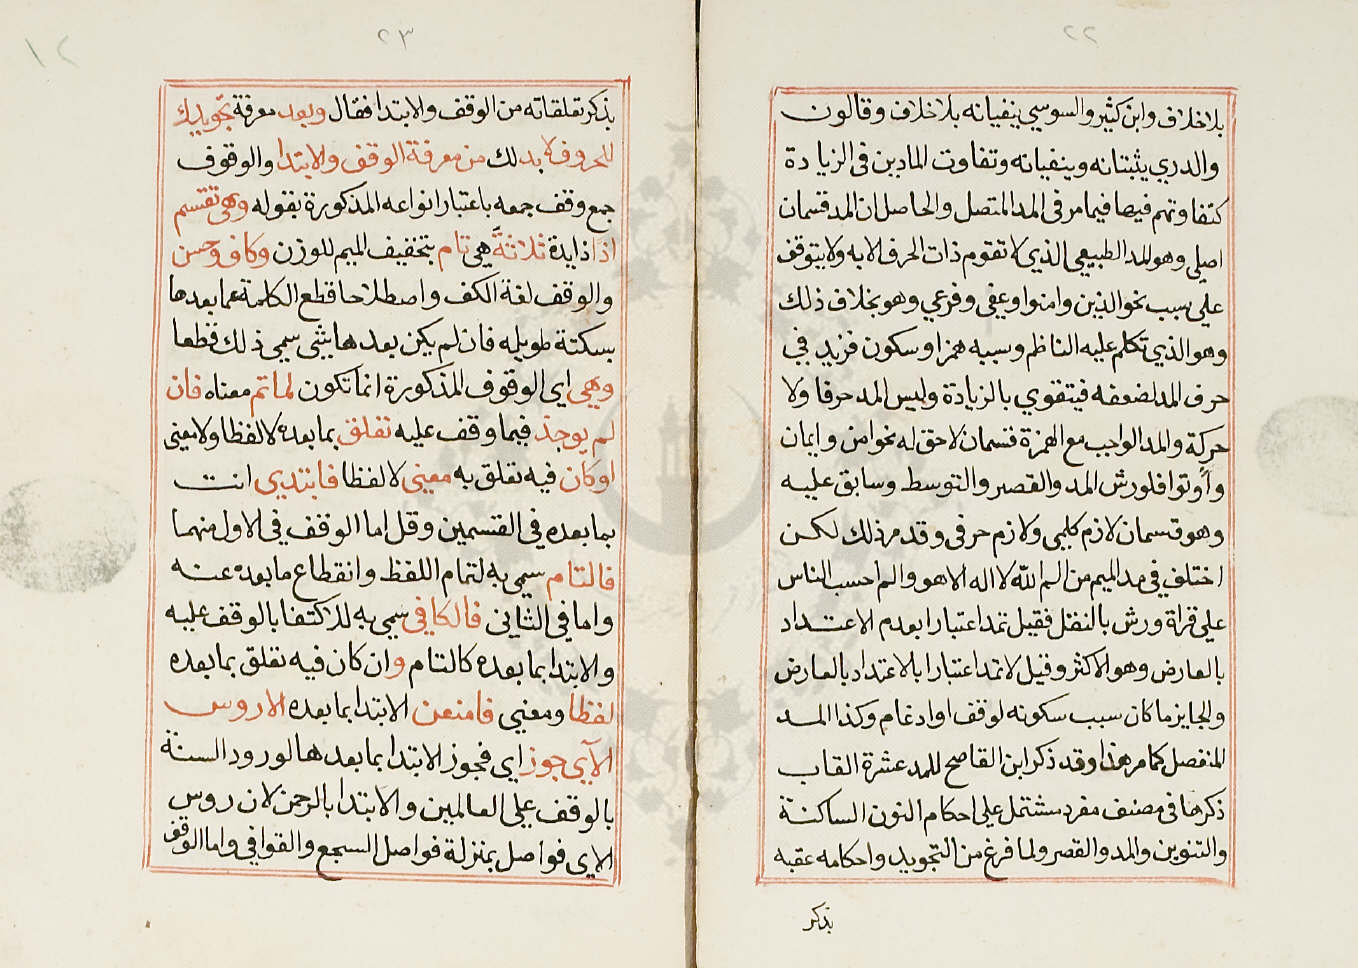 ٢٢
بلاخلاف وابن كثير والسوسي ينفيانه بلاخلاف وقالون
والدري يثبتانه وينفيانه وتفاوت المادين في الزيادة
كتفاوتهم فيها فيما مر في المد المتصل والحاصل ان المد قسمان
اصلي وهو المد الطبيعي الذي لا تقوم ذات الحرف الا به ولا يتوقف
علي سبب نحو الذين وامنوا وعفي وفرعي وهو بخلاف ذلك
وهو الذي تكلم عليه الناظم وسببه همزا وسكون فزيد في
حرف المد لضعفه فيتقوي بالزيادة وليس المد حرفا ولا
حركة والمد الواجب مع الهمزة قسمان لاحق له نحو امن وايمان
واوتوا فلورش المد والقصر والتوسط وسابق عليه
وهو قسمان لازم كلمي ولازم حرفي وقد مر ذلك لكن
اختلف في مد الميم من الم الله لا اله الا هو والم احسب الناس
علي قراة ورش بالنقل فقيل تمد اعتبارا بعدم الاعتداد
بالعارض وهو الاكثر وقيل لا تمد اعتبارا بالاعتداد بالعارض
والجايز ما كان سبب سكونه لوقف او ادغام وكذا المد
المنفصل كما مر هذا وقد ذكر ابن القاصح للمد عشرة القاب
ذكرها في مصنف مفرد مشتمل علي احكام النون الساكنة
والتنوين والمد والقصر ولما فرغ من التجويد واحكامه عقبه
بذكر
٢٣
بذكر تعلقاته من الوقف والابتدا فقال وبعد معرفة تجويدك
للحروف لا بد لك من معرفة الوقف والابتدا والوقوف
جمع وقف جمعه باعتبار انواعه المذكورة بقوله وهي تقسم
اذا ذايدة ثلاثة هي تام بتخفيف الميم للوزن وكاف وحسن
والوقف لغة الكف واصطلاحا قطع الكلمة عما بعدها
بسكتة طويله فان لم يكن بعدها شي سمي ذلك قطعا
وهي اي الوقوف المذكورة انما تكون لما تم معناه فان
لم يوجد فيما وقف عليه تعلق بما بعده لا لفظا ولا معني
او كان فيه تعلق به معني لا لفظا فابتدي انت
بما بعده في القسمين وقل اما الوقف في الاول منهما
فالتام سمي به لتمام اللفظ وانقطاع ما بعده عنه
واما في الثاني فالكافي سمي به للاكتفا بالوقف عليه
والابتدا بما بعده كالتام وان كان فيه تعلق بما بعده
لفظا ومعني فامنعن الابتدا بما بعده الا روس
الآي جوز اي فجوز الابتدا بما بعدها لورود السنة
بالوقف علي العالمين والابتدا بالرحمن لان روس
الاي فواصل بمنزلة فواصل السجع والقوافي واما الوقف